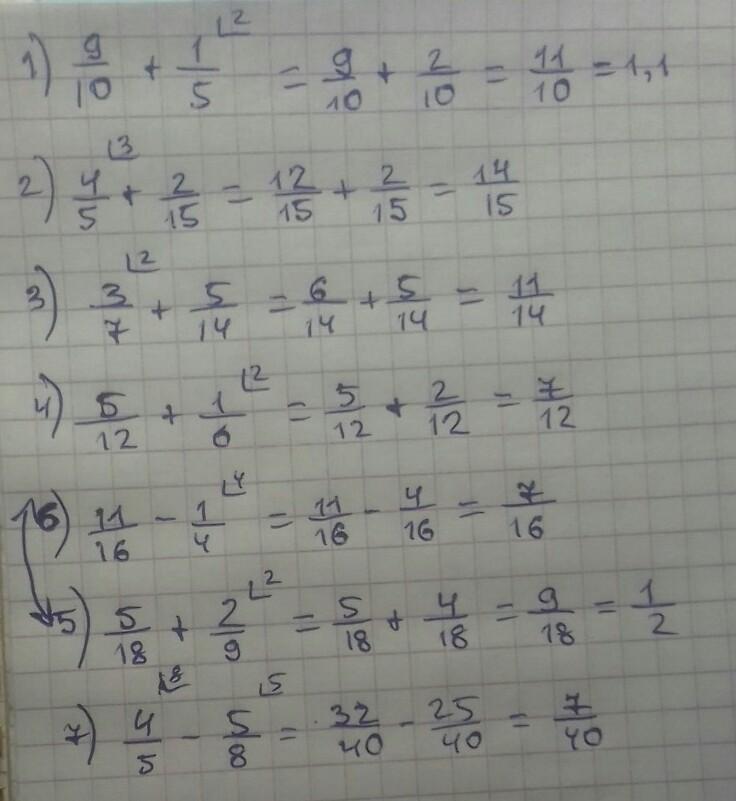 1) 9/10 + 1/5 ⌊2 = 9/10 + 2/10 = 11/10 = 1,1
2) 4/5 ⌊3 + 2/15 = 12/15 + 2/15 = 14/15
3) 3/7 ⌊2 + 5/14 = 6/14 + 5/14 = 11/14
4) 5/12 + 1/6 ⌊2 = 5/12 + 2/12 = 7/12
6) 11/16 - 1/4 ⌊4 = 11/16 - 4/16 = 7/16
5) 5/18 + 2/9 ⌊2 = 5/18 + 4/18 = 9/18 = 1/2
7) 4/5 ⌊8 - 5/8 ⌊5 = 32/40 - 25/40 = 7/40